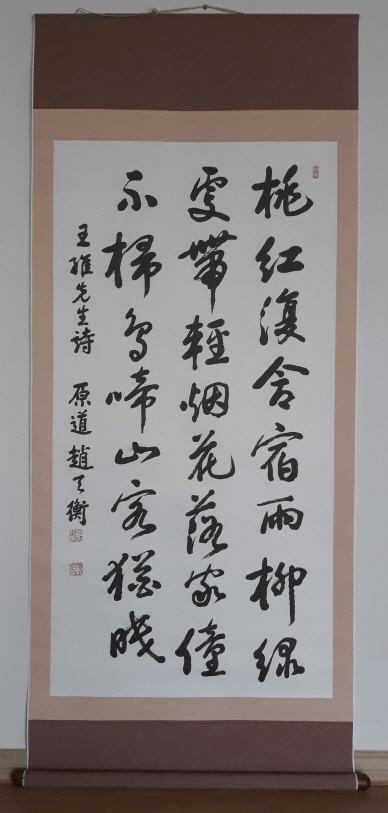 桃紅復含宿雨柳綠
更帶輕烟花落家僮
不掃鳥啼山客猶眠
王維先生詩 原道趙天衡